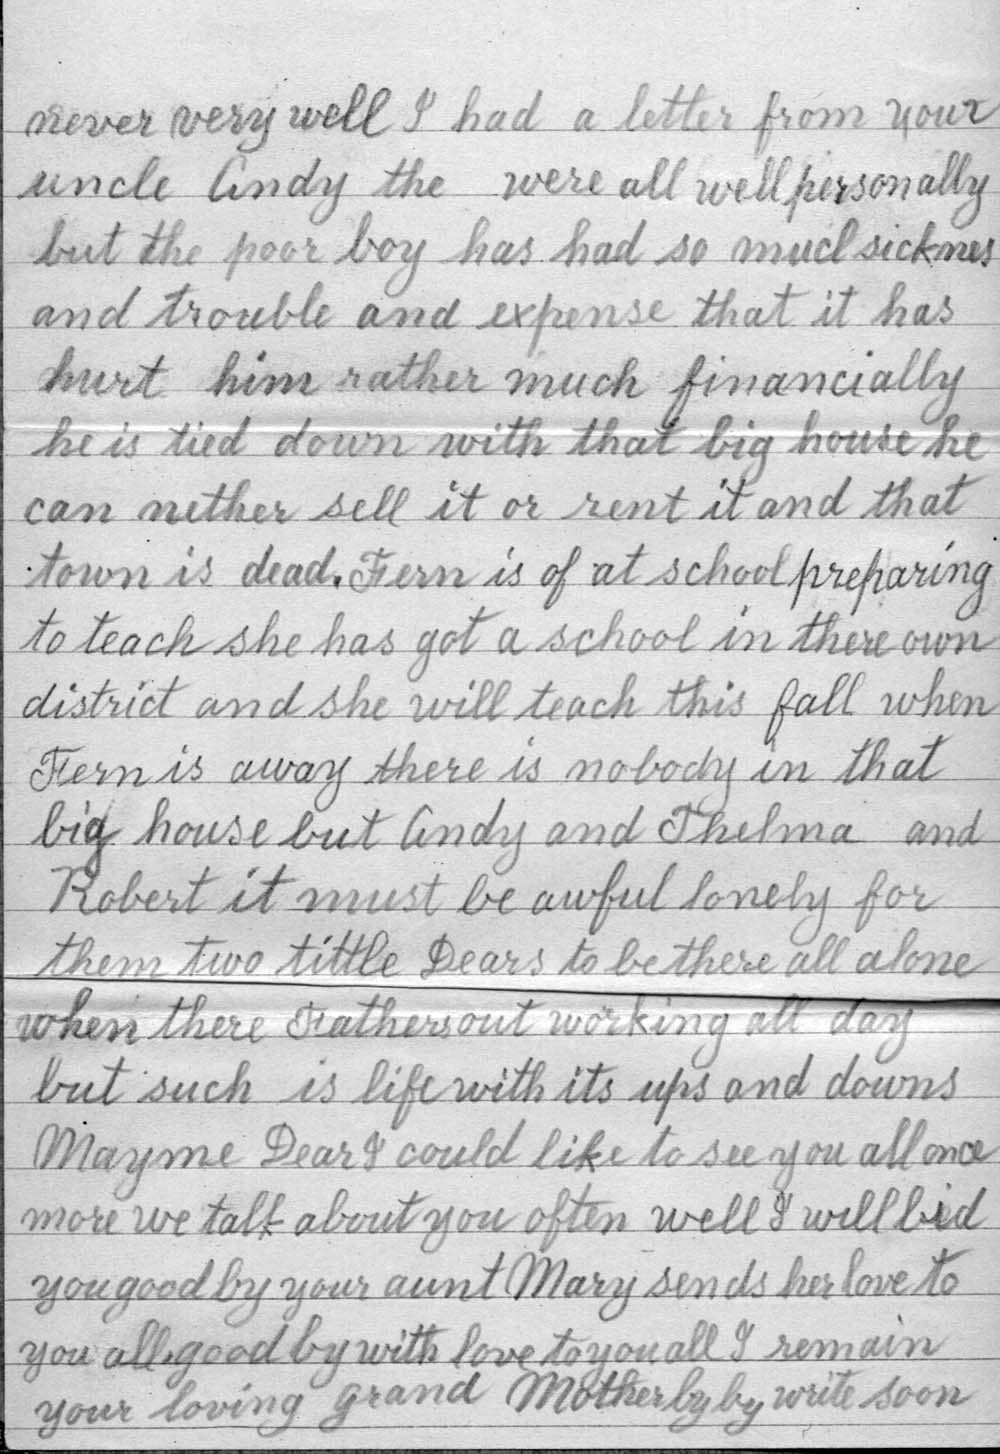 never very well I had a letter from your
uncle Andy the were all well personally
but the poor boy has had so mucl sicknes
and trouble and expense that it has
hurt him rather much financially
he is tied down with that big house he
can nether sell it or rent it and that
town is dead. Fern is of at school preparing
to teach she has got a school in there own
district and she will teach this fall when
Fern is away there is nobody in that
big house but Andy and Thelma and
Robert it must be awful lonely for
them two tittle Dears to be there all alone
when there Fathers out working all day
but such is life with its ups and downs
Mayme Dear I could like to see you all once
more we talk about you often well I will bid
you good by your aunt Mary sends her love to
you all. good by with love to you all I remain
your loving grand Mother by by write soon